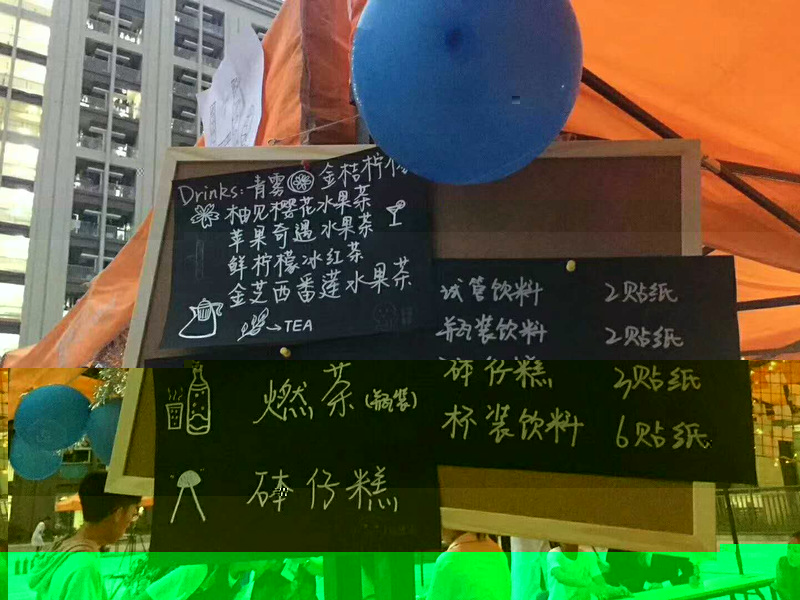 Drinks: 青雾 金桔柠
柚见樱花水果茶
苹果奇遇水果茶
鲜柠檬冰红茶
金芝西番莲水果茶
TEA
燃茶(瓶装)
砵仔糕
试管饮料 2贴纸
瓶装饮料 2贴纸
砵仔糕 3贴纸
杯装饮料 6贴纸